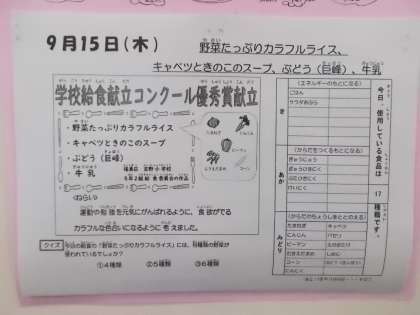 9月15日(木)
野菜たっぷりカラフルライス、
キャベツときのこのスープ、ぶどう(巨峰)、牛乳
学校給食献立コンクール優秀賞献立
・野菜たっぷりカラフルライス
・キャベツときのこのスープ
・ぶどう(巨峰)
・牛乳
<ねらい>
運動や勉強を元気にがんばれるように、食欲がでる
カラフルな色合いになるように考えました。
クイズ
今日の給食の「野菜たっぷりカラフルライス」には、何種類の野菜が
使われているでしょか?
①4種類 ②5種類 ③6種類
今日、使用している食品は17種類です。
き
(エネルギーのもとになる)
ごはん
サラダあぶら
あか
(からだをつくるもとになる)
ぎゅうにゅう
ぶたひきにく
けいにく
みどり
(からだのちょうしをととのえる)
たまねぎ キャベツ
にんじん パセリ
ピーマン えのきたけ
しめじ
コーン
にんにく